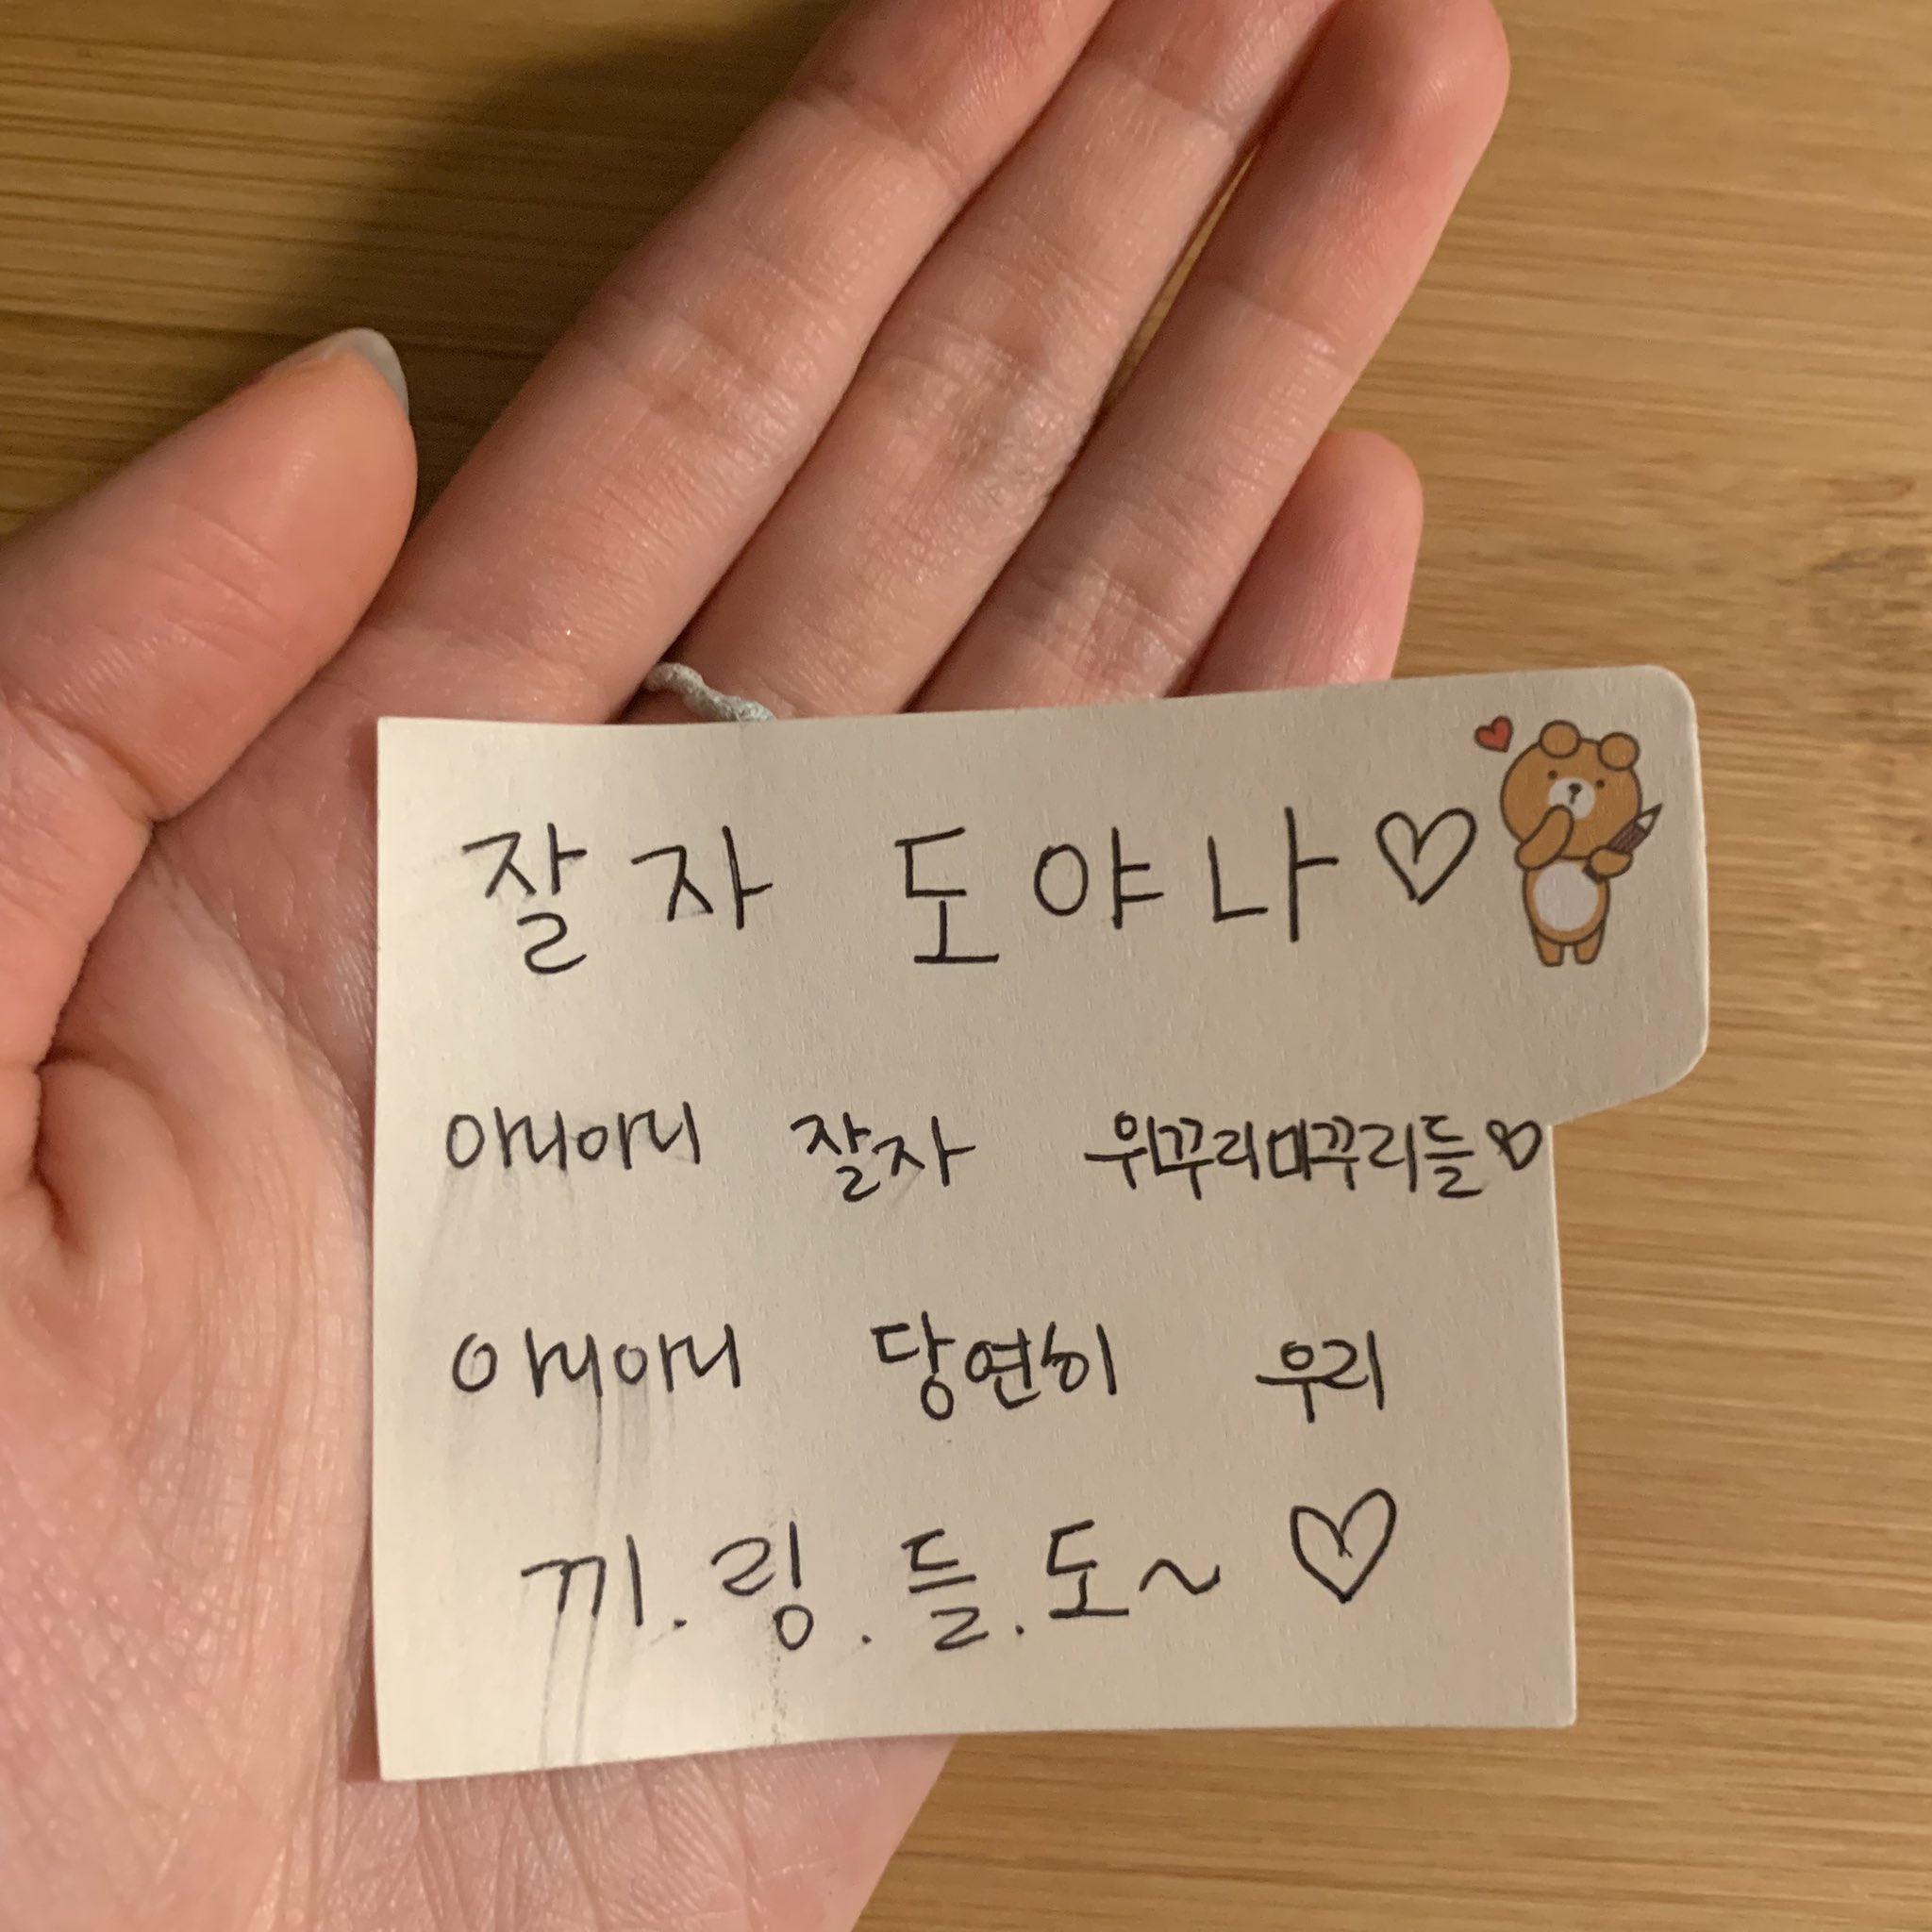 잘자 도야나♡
아니아니 잘자 위꾸리미꾸리들♡
아니아니 당연히 우리
끼.링.들.도~ ♡